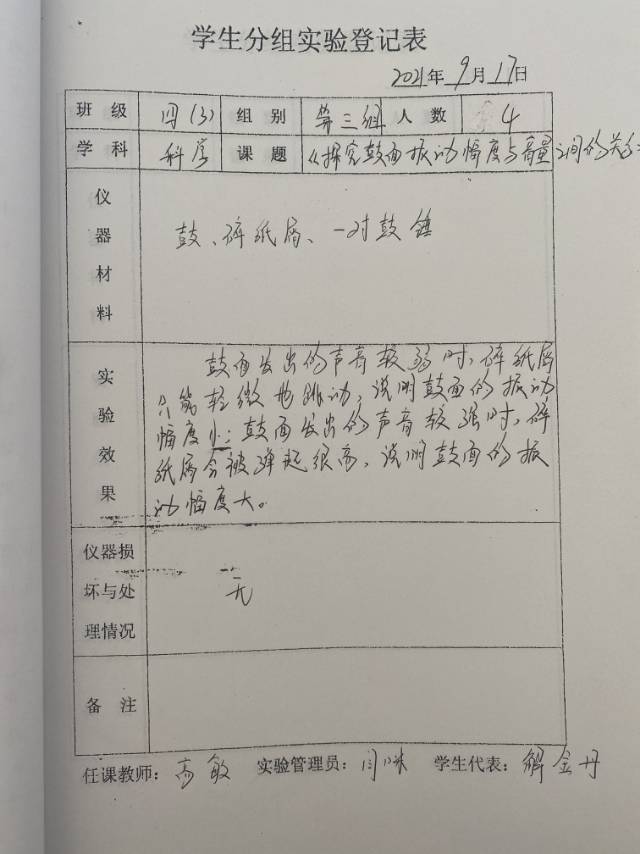 学生分组实验登记表
2021年9月17日
班级 四(3) 组别 第三组 人数 4
学科 科学 课题 《探究鼓面振动幅度与音量之间的关系
仪器材料 鼓、碎纸屑、一对鼓锤
实验效果
鼓面发出的声音较弱时,碎纸屑
只能轻微地跳动,说明鼓面的振动
幅度小;鼓面发出的声音较强时,碎
纸屑会被弹起很高,说明鼓面的振
动幅度大。
仪器损
坏与处 无
理情况
备注
任课教师:高敏 实验管理员:闫 学生代表:解金丹